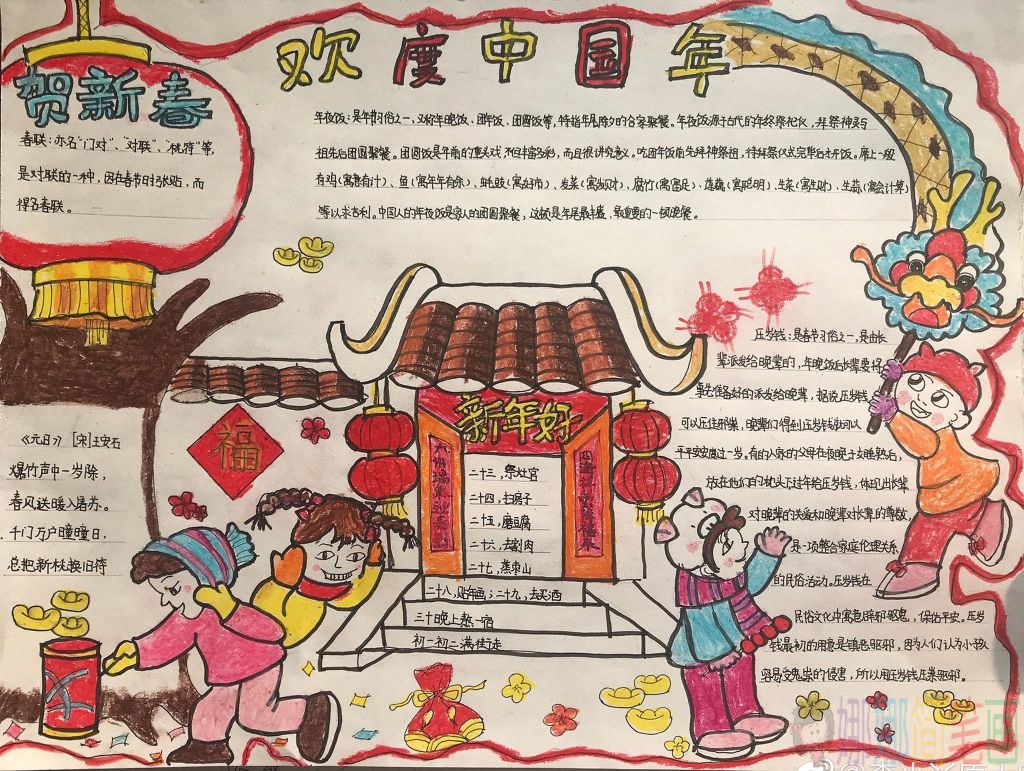 欢度中国年
贺新春
春联：亦名“门对”、“对联”、“桃符”等，
是对联的一种，因在春节时张贴，而
得名春联。
年夜饭：是年节习俗之一，又称年晚饭、团年饭、团圆饭等，特指年尾除夕的合家聚餐。年夜饭源于古代的年终祭祀仪，拜祭神灵与
祖先后团圆聚餐。团圆饭是年前的重头戏，不但丰富多彩，而且很讲究意义。吃团年饭前先拜神祭祖，待拜祭仪式完毕后才开饭。席上一般
有鸡（寓意有计）、鱼（寓年年有余）、蚝豉（寓好市）、发菜（寓发财）、腐竹（寓富足）、莲藕（寓聪明）、生菜（寓生财）、生蒜（寓会计算）
等以求吉利。中国人的年夜饭是家人的团圆聚餐，这顿是年尾最丰盛、最重要的一顿晚餐。
福
新年好
二十三，祭灶官
二十四，扫房子
二十五，磨豆腐
二十六，去割肉
二十七，蒸枣山
二十八，贴年画；二十九，去买酒
三十晚上熬一宿
初一初二满街走
《元日》 [宋]王安石
爆竹声中一岁除，
春风送暖入屠苏。
千门万户曈曈日，
总把新桃换旧符
压岁钱：是春节习俗之一，是由长
辈派发给晚辈的，年晚饭后长辈要将
事先准备好的派发给晚辈，据说压岁钱
可以压住邪祟，晚辈们得到压岁钱就可以
平平安安度过一岁。有的人家的父母在夜晚子女睡熟后，
放在他们的枕头下过年给压岁钱，体现出长辈
对晚辈的关爱和晚辈对长辈的尊敬，
是一项整合家庭伦理关系
的民俗活动。压岁钱在
民俗文化中寓意辟邪驱鬼，保佑平安。压岁
钱最初的用意是镇恶驱邪，因为人们认为小孩
容易受鬼祟的侵害，所以用压岁钱压祟驱邪。
娜娜简笔画